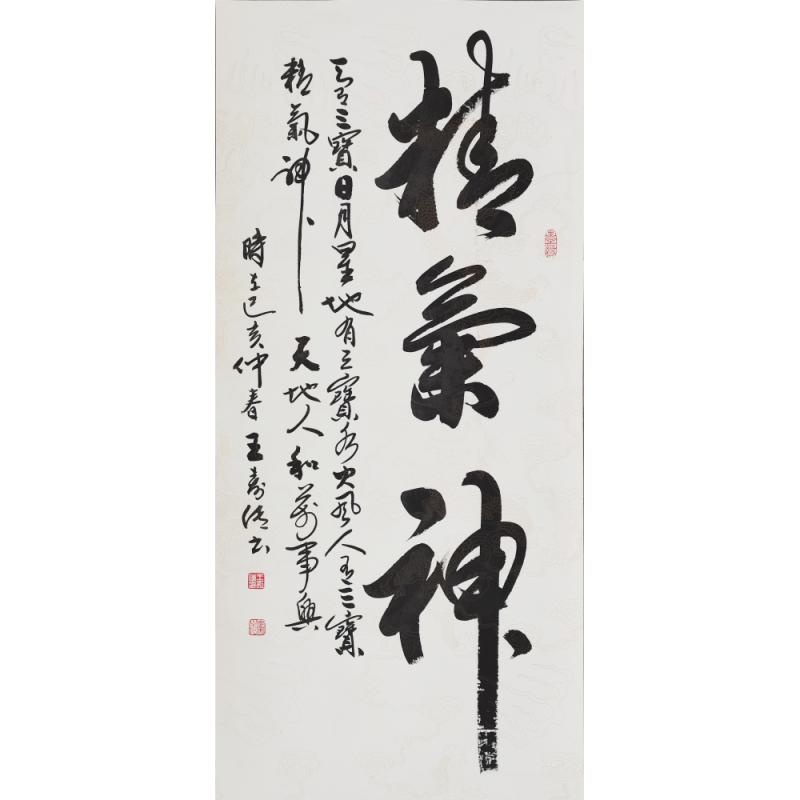 精氣神
天有三寶日月星地有三寶水火風人有三寶
精氣神天地人和萬事興
時在己亥仲春王壽
書